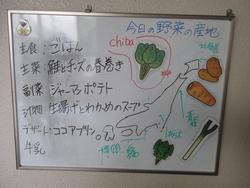 今日の野菜の産地
主食：ごはん
chiba
主菜：鮭とチーズの春巻き
副菜：ジャーマンポテト
汁物：生揚げとわかめのスープ
デザート：ココアプリン
牛乳
北海道
青森